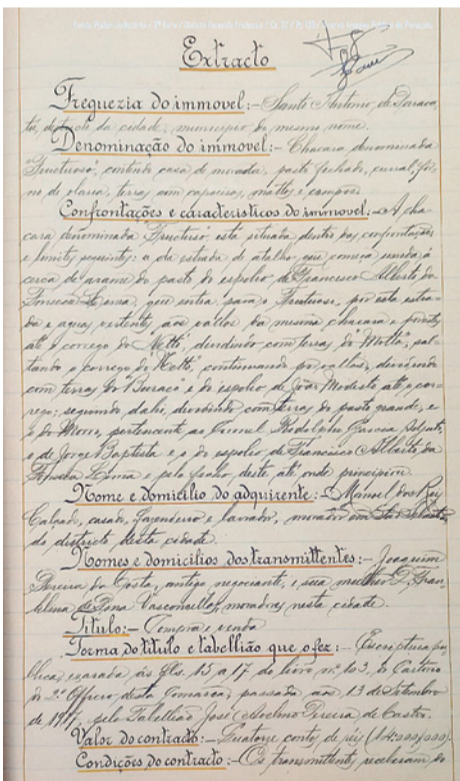 Extracto
Freguezia do immovel:- Santo Antonio de Paraca-
tú, districto da cidade, municipio do mesmo nome.
Denominação do immovel:- Chacara denominada
"Fructuoso", contendo casa de morada, pasto fechado, curral, for-
no de olaria, terras com capoeiras, mattos e campos.
Confrontações e caracteristicos do immovel:- A cha-
cara denominada "Fructuoso" está situada dentro das confrontações
e limites seguintes: a da estrada de atalho que começa unida á
cerca de arame do pasto do espolio de Francisco Alberto da
Fonseca Lima, que entra para o Fructuoso, por esta estra-
da e aguas vertentes, aos vallos da mesma chacara e
até o corrego do dividindo com terras do sal-
tando o corrego do continuando por vallos, dividindo
com terras do "Buraco" e do espolio de João Modesto até o cor-
rego; seguindo dahi, dividindo com terras do pasto grande, e
o do Morro, pertencente ao Coronel Rodolpho Garcia
e de Jorge Baptista e o do espolio de Francisco Alberto da
Fonseca Lima e pelo fecho deste até onde principiou.
Nome e domicilio do adquirente:- Manoel dos Reis
Calçado, casado, fazendeiro e lavrador, morador em
do districto desta cidade.
Nomes e domicilios dos transmittentes:- Joaquim
Pereira da Costa, antigo negociante, e sua mulher D. Fran-
kelina de Pina Vasconcellos, moradores nesta cidade.
Titulo:- Compra e venda
Forma do titulo e tabellião que o fez:- Escriptura pu-
blica, exarada ás fls. 15 a 17 do livro n.º 103, do Cartorio
do 2º Officio desta Comarca, passada aos 13 de Setembro
de 1917, pelo Tabellião José Anselmo Pereira de Castro.
Valor do contracto:- Quatorze contos de réis (14:000$000).
Condições do contracto:- Os transmittentes receberam do